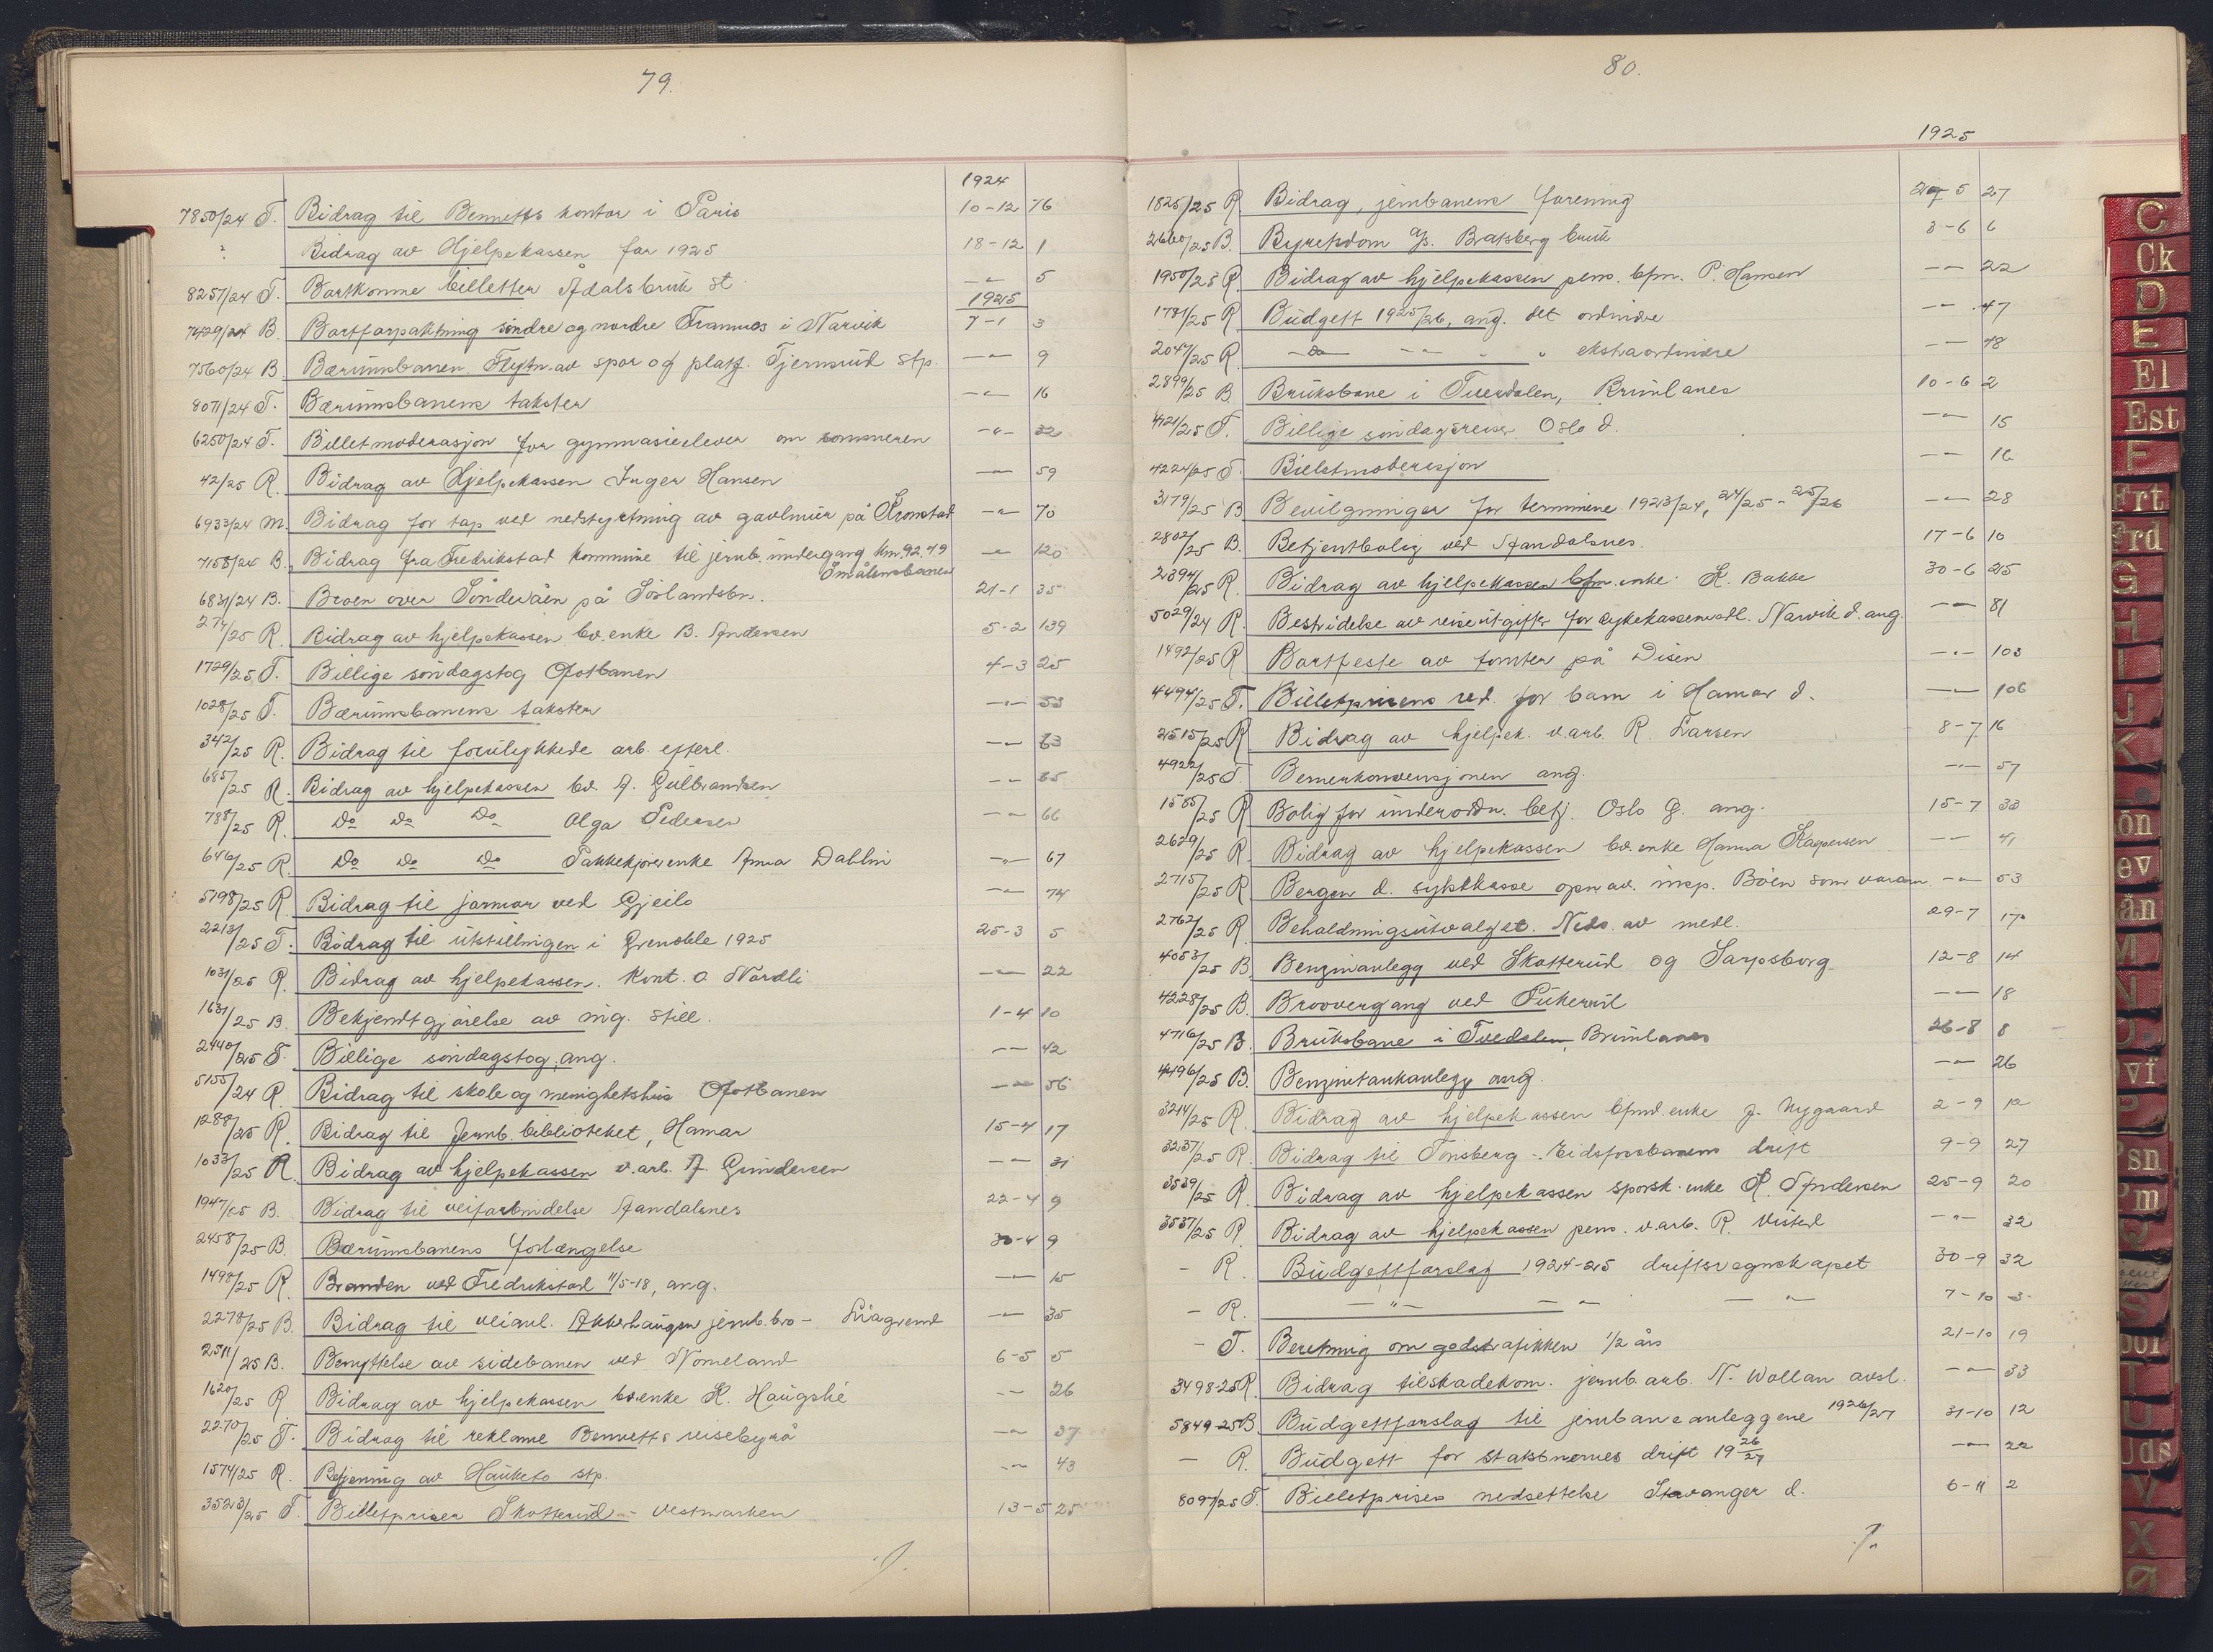 79.
1924
7850/24 T. Bidrag til Bennetts kontor i Paris 10-12 76
? Bidrag av Hjelpekassen for 1925 18-12 1
8257/24 T. Bortkomne billetter Ådalsbruk st. -"- 5
1925
7429/24 B. Bortforpaktning söndre og nordre Framnes i Narvik 7-1 3
7560/24 B Bærumsbanen. Flytn. av spor og platf. Tjernsrud stp. -"- 9
8071/24 T. Bærumsbanens takster -"- 16
6250/24 T. Billetmoderasjon for gymnasieelever om sommeren -"- 32
42/25 R. Bidrag av Hjelpekassen Inger Hansen -"- 59
6933/24 M. Bidrag for tap ved nedstyrtning av gavlmur på Kronstad -"- 70
7158/24 B. Bidrag fra Fredrikstad kommune til jernb. undergang km. 92.79 -"- 120
Smålensbanen
6831/24 B. Broen over Sönderåen på Sörlandsbn. 21-1 35
274/25 R. Bidrag av hjelpekassen bv. enke B. Andersen 5-2 139
1729/25 T. Billige söndagstog Ofotbanen 4-3 25
1028/25 T. Bærumsbanens takster -"- 53
342/25 R. Bidrag til forulykkede arb. efterl. -"- 63
685/25 R. Bidrag av hjelpekassen bv. A. Gulbrandsen -"- 65
788/25 R. Do Do Do Olga Pedersen -"- 66
646/25 R. Do Do Do Pakkekjörerenke Anna Dahlin -"- 67
5198/25 R Bidrag til jarmor ved Gjeilo -"- 74
2213/25 T. Bidrag til utstillingen i Grenoble 1925 25-3 5
1031/25 R. Bidrag av hjelpekassen. Kont. O. Nordli -"- 22
1631/25 B. Bekjendtgjörelse av ing. still. 1-4 10
2440/25 T. Billige söndagstog, ang. -"- 42
5155/24 R. Bidrag til skole og menighetshus Ofotbanen -"- 56
1288/25 R. Bidrag til Jernb. biblioteket, Hamar 15-4 17
1033/25 R. Bidrag av hjelpekassen v. arb. A. Gundersen -"- 31
1947/25 B. Bidrag til veiforbindelse Åndalsnes 22-4 9
2458/25 B. Bærumsbanens forlængelse 30-4 9
1498/25 R. Branden ved Fredrikstad 11/5-18, ang. -"- 15
2278/25 B. Bidrag til veianl. Akkerhaugen jernb. bro - Liagrend -"- 35
2511/25 B. Benyttelse av sidebanen ved Nomeland 6-5 5
1620/25 R Bidrag av hjelpekassen bv. enke K. Haugslie -"- 26
2270/25 T. Bidrag til reklame Bennetts reisebyrå -"- 37
1574/25 R. Betjening av Hauketo stp. -"- 43
3523/25 T. Billetpriser Skotterud - Vestmarken 13-5 25
80.
1925
1825/25 R. Bidrag, jernbanens forening 27-5 27
2660/25 B. Byretsdom A/S. Bratsberg bruk 3-6 6
1950/25 R. Bidrag av hjelpekassen pens. bfm. P. Hansen -"- 22
1781/25 R Budgett 1925/26, ang. det ordinære -"- 47
2047/25 R -do- -"- " " ekstraordinære -"- 48
2899/25 B Bruksbane i Tverdalen, Brunlanes 10-6 2
4121/25 T. Billige söndagsreiser Oslo d. -"- 15
4224/25 T. Billetmoderasjon -"- 16
3179/25 B Bevilgninger for terminene 1923/24, 24/25 - 25/26 -"- 28
2802/25 B. Betjentbolig ved Åndalsnes. 17-6 10
2394/25 R. Bidrag av hjelpekassen bfm. enke K. Bakke 30-6 25
5029/24 R. Bestridelse av reiseutgifter for sykekassemedl. Narvik d. ang. -"- 81
1492/25 R Bortfeste av tomter på Disen -"- 103
4494/25 T. Billetprisens red. for barn i Hamar d. -"- 106
2515/25 R Bidrag av hjelpek. v. arb. R. Larsen 8-7 16
4922/25 T. Bernerkonvensjonen ang. -"- 57
1585/25 R Bolig for underordn. betj. Oslo Ø. ang. 15-7 33
2629/25 R Bidrag av hjelpekassen bv. enke Hanna Kaspersen -"- 41
2715/25 R Bergen d. sykekasse opn. av. insp. Böen som varam. -"- 53
2762/25 R Beholdningsutvalget. Neds. av medl. 29-7 17
4053/25 B Benzinanlegg ved Skotterud og Sarpsborg 12-8 14
4228/25 B. Broovergang ved Pukerud -"- 18
4716/25 B. Bruksbane i Tvedalen, Brunlanes 26-8 8
4496/25 B. Benzintankanlegg ang. -"- 26
3214/25 R. Bidrag av hjelpekassen bfmd. enke J. Nygaard 2-9 12
3237/25 R. Bidrag til Tönsberg - Eidsfossbanens drift 9-9 27
3539/25 R. Bidrag av hjelpekassen sporsk. enke K. Andersen 25-9 20
3537/25 R. Bidrag av hjelpekassen pens. v. arb. R. Visted -"- 32
- R. Budgettforslag 1924-25 driftsregnskapet 30-9 32
- R. -"- -"- -"- 7-10 3
- T. Beretning om godstrafikken 1/2 års 21-10 19
3498-25 R. Bidrag tilskadekom. jernb. arb. N. Wollan avsl. -"- 33
5849-25 B Budgettforslag til jernbaneanleggene 1926/27 31-10 12
- R. Budgett for statsbanernes drift 19 26/27 -"- 22
8097/25 T. Billetprisens nedsettelse Stavanger d. 6-11 2
C
Ck
D
E
El
Est
F
Frt
Frd
G
H
I
J
K
M
N
P
Psn
Pm
Q
S
T
U
Uds
V
X
Ø